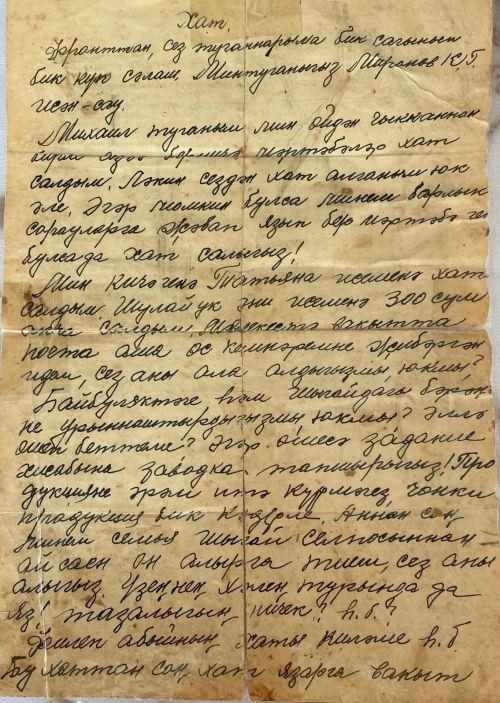 Хат.
Фронттан, сез туганнарыма бик сагынып
бик күп сәлам. Минтуганыгыз Миронов К.Г.
исән-сау.
Михаил туганым мин өйдән чыкканнан
бирле мәртәбәләр хат
салдым. Ләкин сездән хат алганым юк
әле. Әгәр мөмкин булса минем барлык
сорауларга җәвап язып бер мәртәбә ген
булсада хат салыгыз!
Мин кичәгенә Татьяна исеменә хат
салдым. Шулай ук әни исеменә 300 сум
акча салдым. вакытта
поста аша өс кемнәремне җибәргән
идем, сез аны ала алдыгызмы, юкмы?
Байбулякттге һәм Шыгайдагы бәрәң-
не урыннаштырдыгызмы юкмы? Әллә
беттеме? Әгәр задание
хисабына заводка тапшырыгыз! Про
дукцияне әрәм итә күрмәгез, чөнки
продукция бик кадерле. Аннан соң
минем семья Шыгай сельпосыннан-
ай саен он алырга тиеш, сез аны
алыгыз. Үзеңнең хәлең турында да
яз! тазалыгың ничек? һ.б.?
абыйның хаты киләме һ.б.
Бу хаттан соң хат язарга вакыт